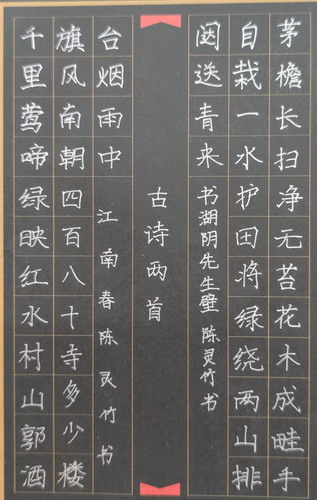 茅檐长扫净无苔花木成畦手
自栽一水护田将绿绕两山排
闼送青来 书湖阴先生壁 陈灵竹书
古诗两首
千里莺啼绿映红水村山郭酒
旗风南朝四百八十寺多少楼
台烟雨中 江南春 陈灵竹书